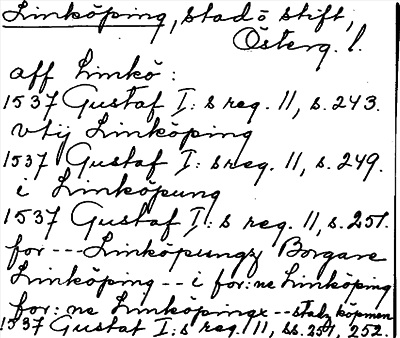 Linköping, stad o stift,
Österg. l.
aff Linkö:
1537 Gustaf I:s reg. 11, s. 243.
vtij Linköping
1537 Gustaf I:s reg. 11, s. 249.
i Linköpung
1537 Gustaf I:s reg. 11, s. 251.
for --- Linköpungz Borgare
Linköping -- i for:ne Linköping
for:ne Linköpings -- stadz köpmen
1537 Gustaf I:s reg. 11, ss. 251, 252.